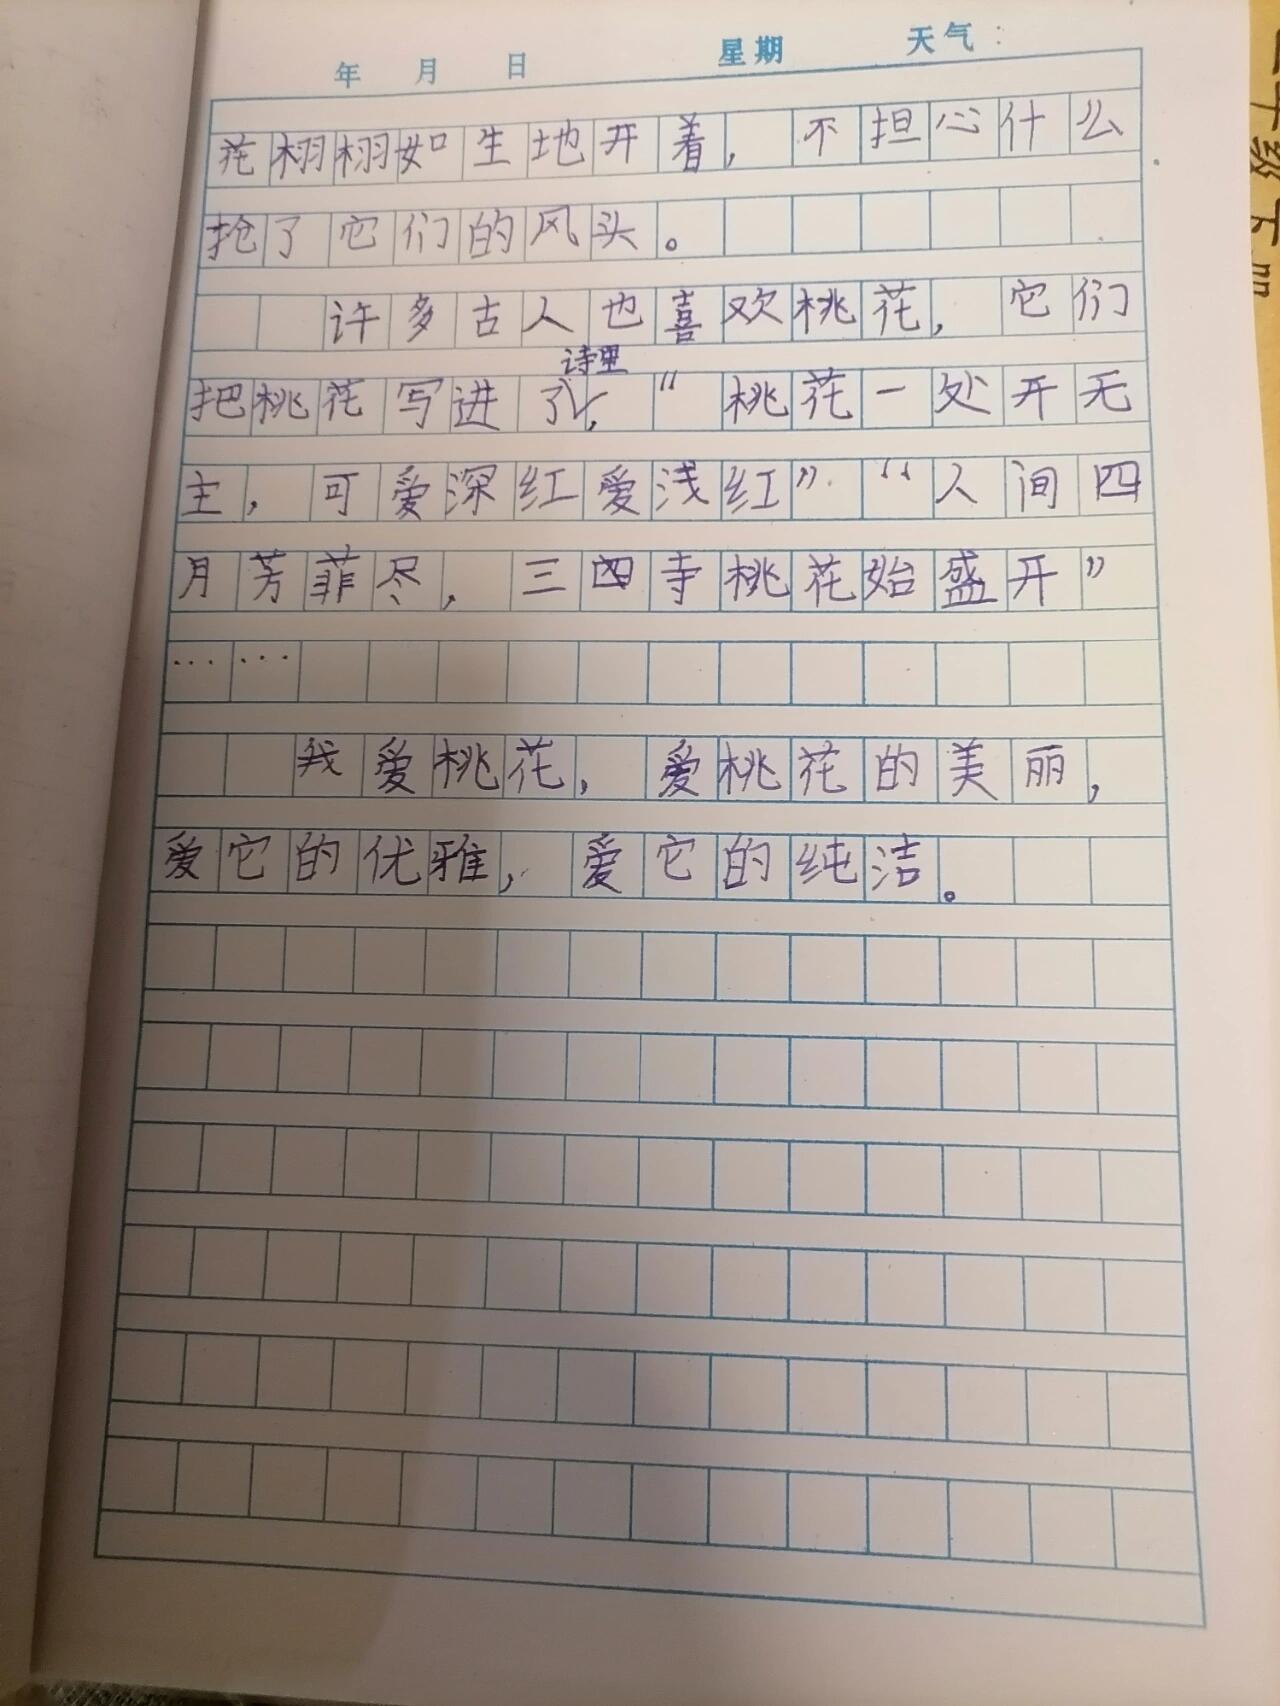 年 月 日 星期 天气：
花栩栩如生地开着，不担心什么
抢了它们的风头。
许多古人也喜欢桃花，它们
诗里
把桃花写进了，“桃花一处开无
主，可爱深红爱浅红”“人间四
月芳菲尽，三四寺桃花始盛开”
……
我爱桃花，爱桃花的美丽，
爱它的优雅，爱它的纯洁。